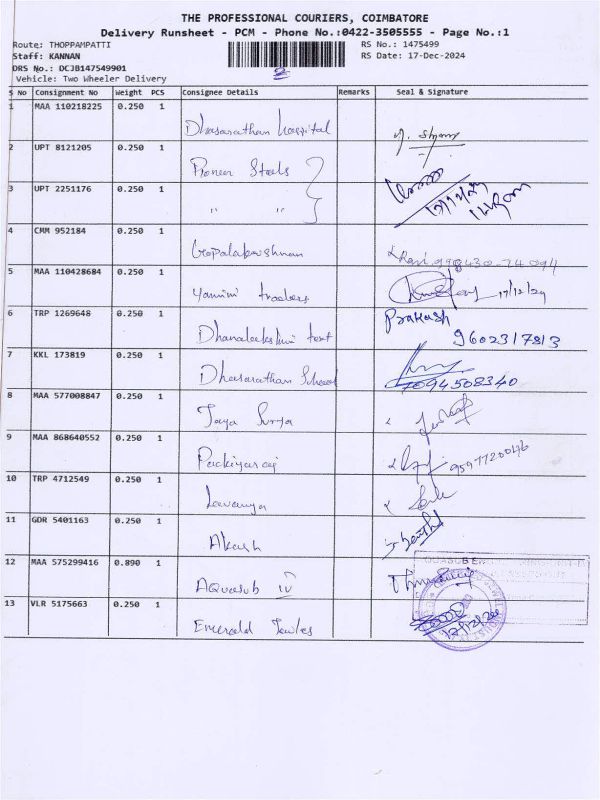 THE PROFESSIONAL COURIERS, COIMBATORE
Delivery Runsheet - PCM - Phone No.:0422-3505555 - Page No.:1
Route: THOPPAMPATTI RS No.: 1475499
Staff: KANNAN RS Date: 17-Dec-2024
DRS No.: DCJB147549901
Vehicle: Two Wheeler Delivery
S No Consignment No Weight PCS Consignee Details Remarks Seal & Signature
1 MAA 110218225 0.250 1
Dhasarathan hospital
2 UPT 8121205 0.250 1
Pioneer Steels
3 UPT 2251176 0.250 1
" "
4 CMM 952184 0.250 1
Gopalakrishnan
5 MAA 110428684 0.250 1
Yamini traders 17/12/24
6 TRP 1269648 0.250 1 Prakash
Dhanalakshmi text 9602317813
7 KKL 173819 0.250 1
Dhasarathan School 7094508340
8 MAA 577008847 0.250 1
Jaya Surya
9 MAA 868640552 0.250 1
Packiyaraj
10 TRP 4712549 0.250 1
Lavanya
11 GDR 5401163 0.250 1
Akash
12 MAA 575299416 0.890 1
Aquasub IV
13 VLR 5175663 0.250 1
Emerald Jewles